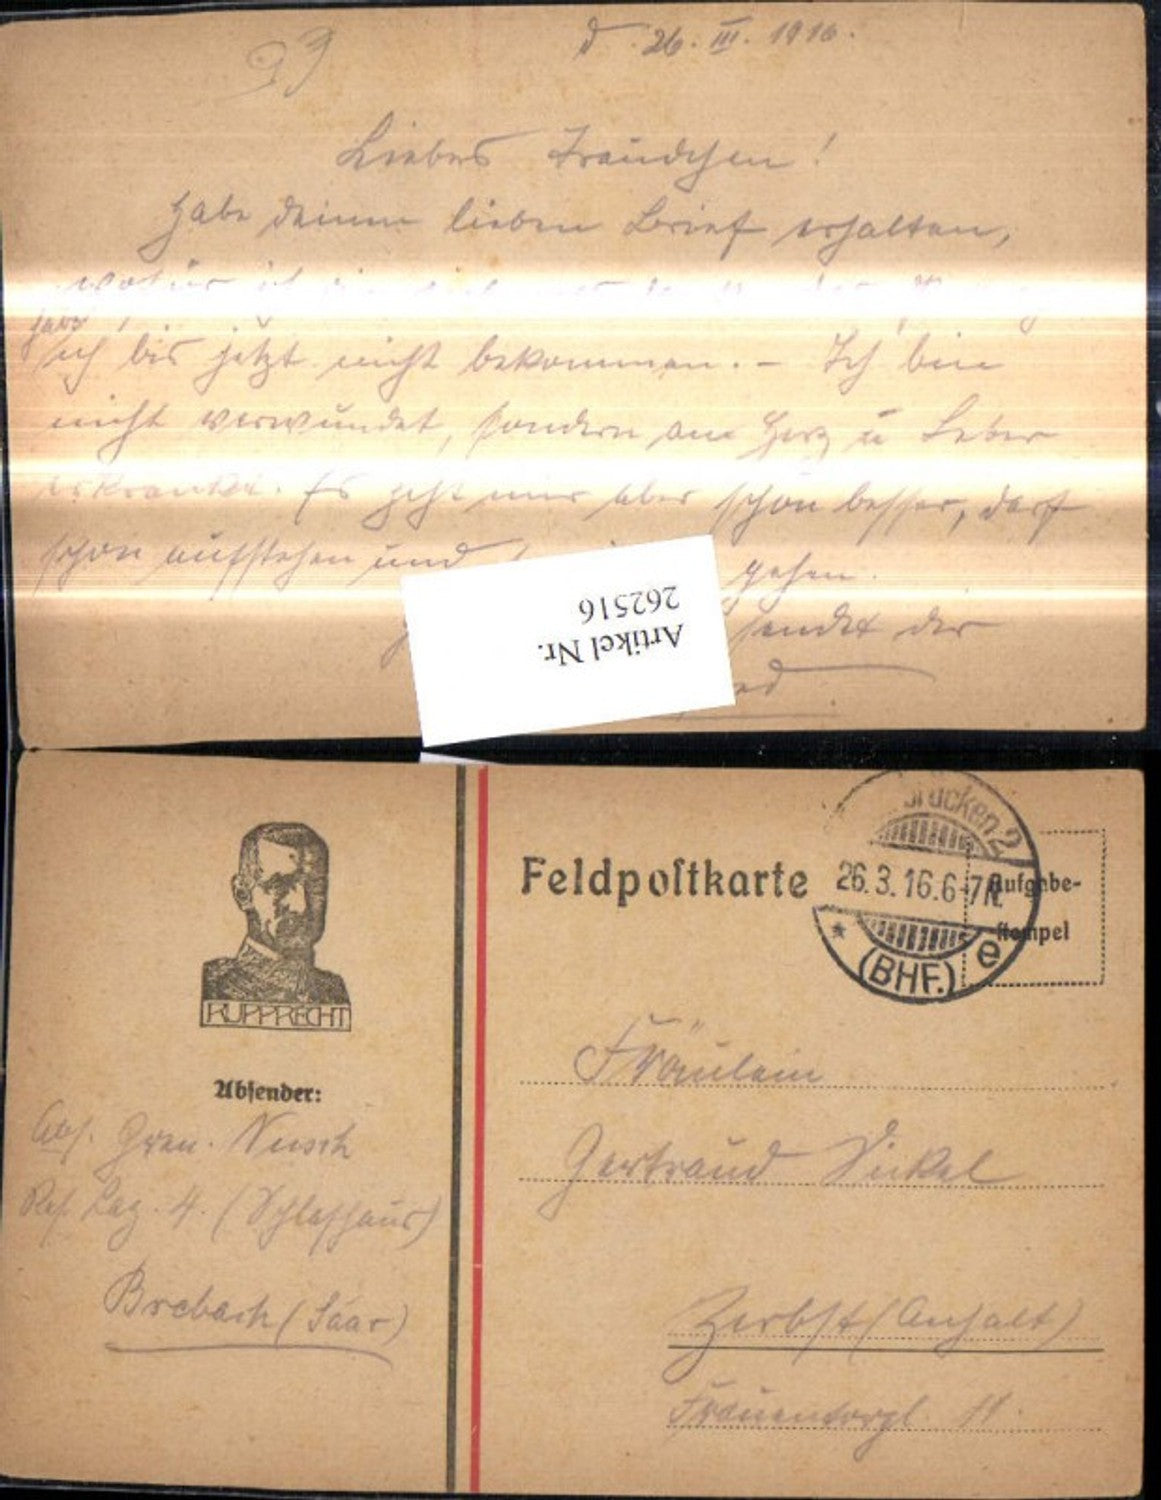 d. 26. III. 1916.
Liebes Traudchen!
Habe deinen lieben Brief erhalten,
wofür
habe
ich bis jetzt nicht bekommen. – Ich bin
nicht verwundet, sondern am Herz u Leber
erkrankt. Es geht mir aber schon besser, darf
schon aufstehen und gehen.
sendet der
Artikel Nr.
262516
RUPPRECHT
Absender:
Abs. Gren. Nusch
Res. Laz. 4. (Schlafhaus)
Brebach (Saar)
Feldpostkarte
Aufgabe-
stempel
brücken 2
26.3.16.6-7N.
* (BHF.) e
Fräulein
Gertraud Sickel
Zerbst (Anhalt)
Frauentorpl. 11.